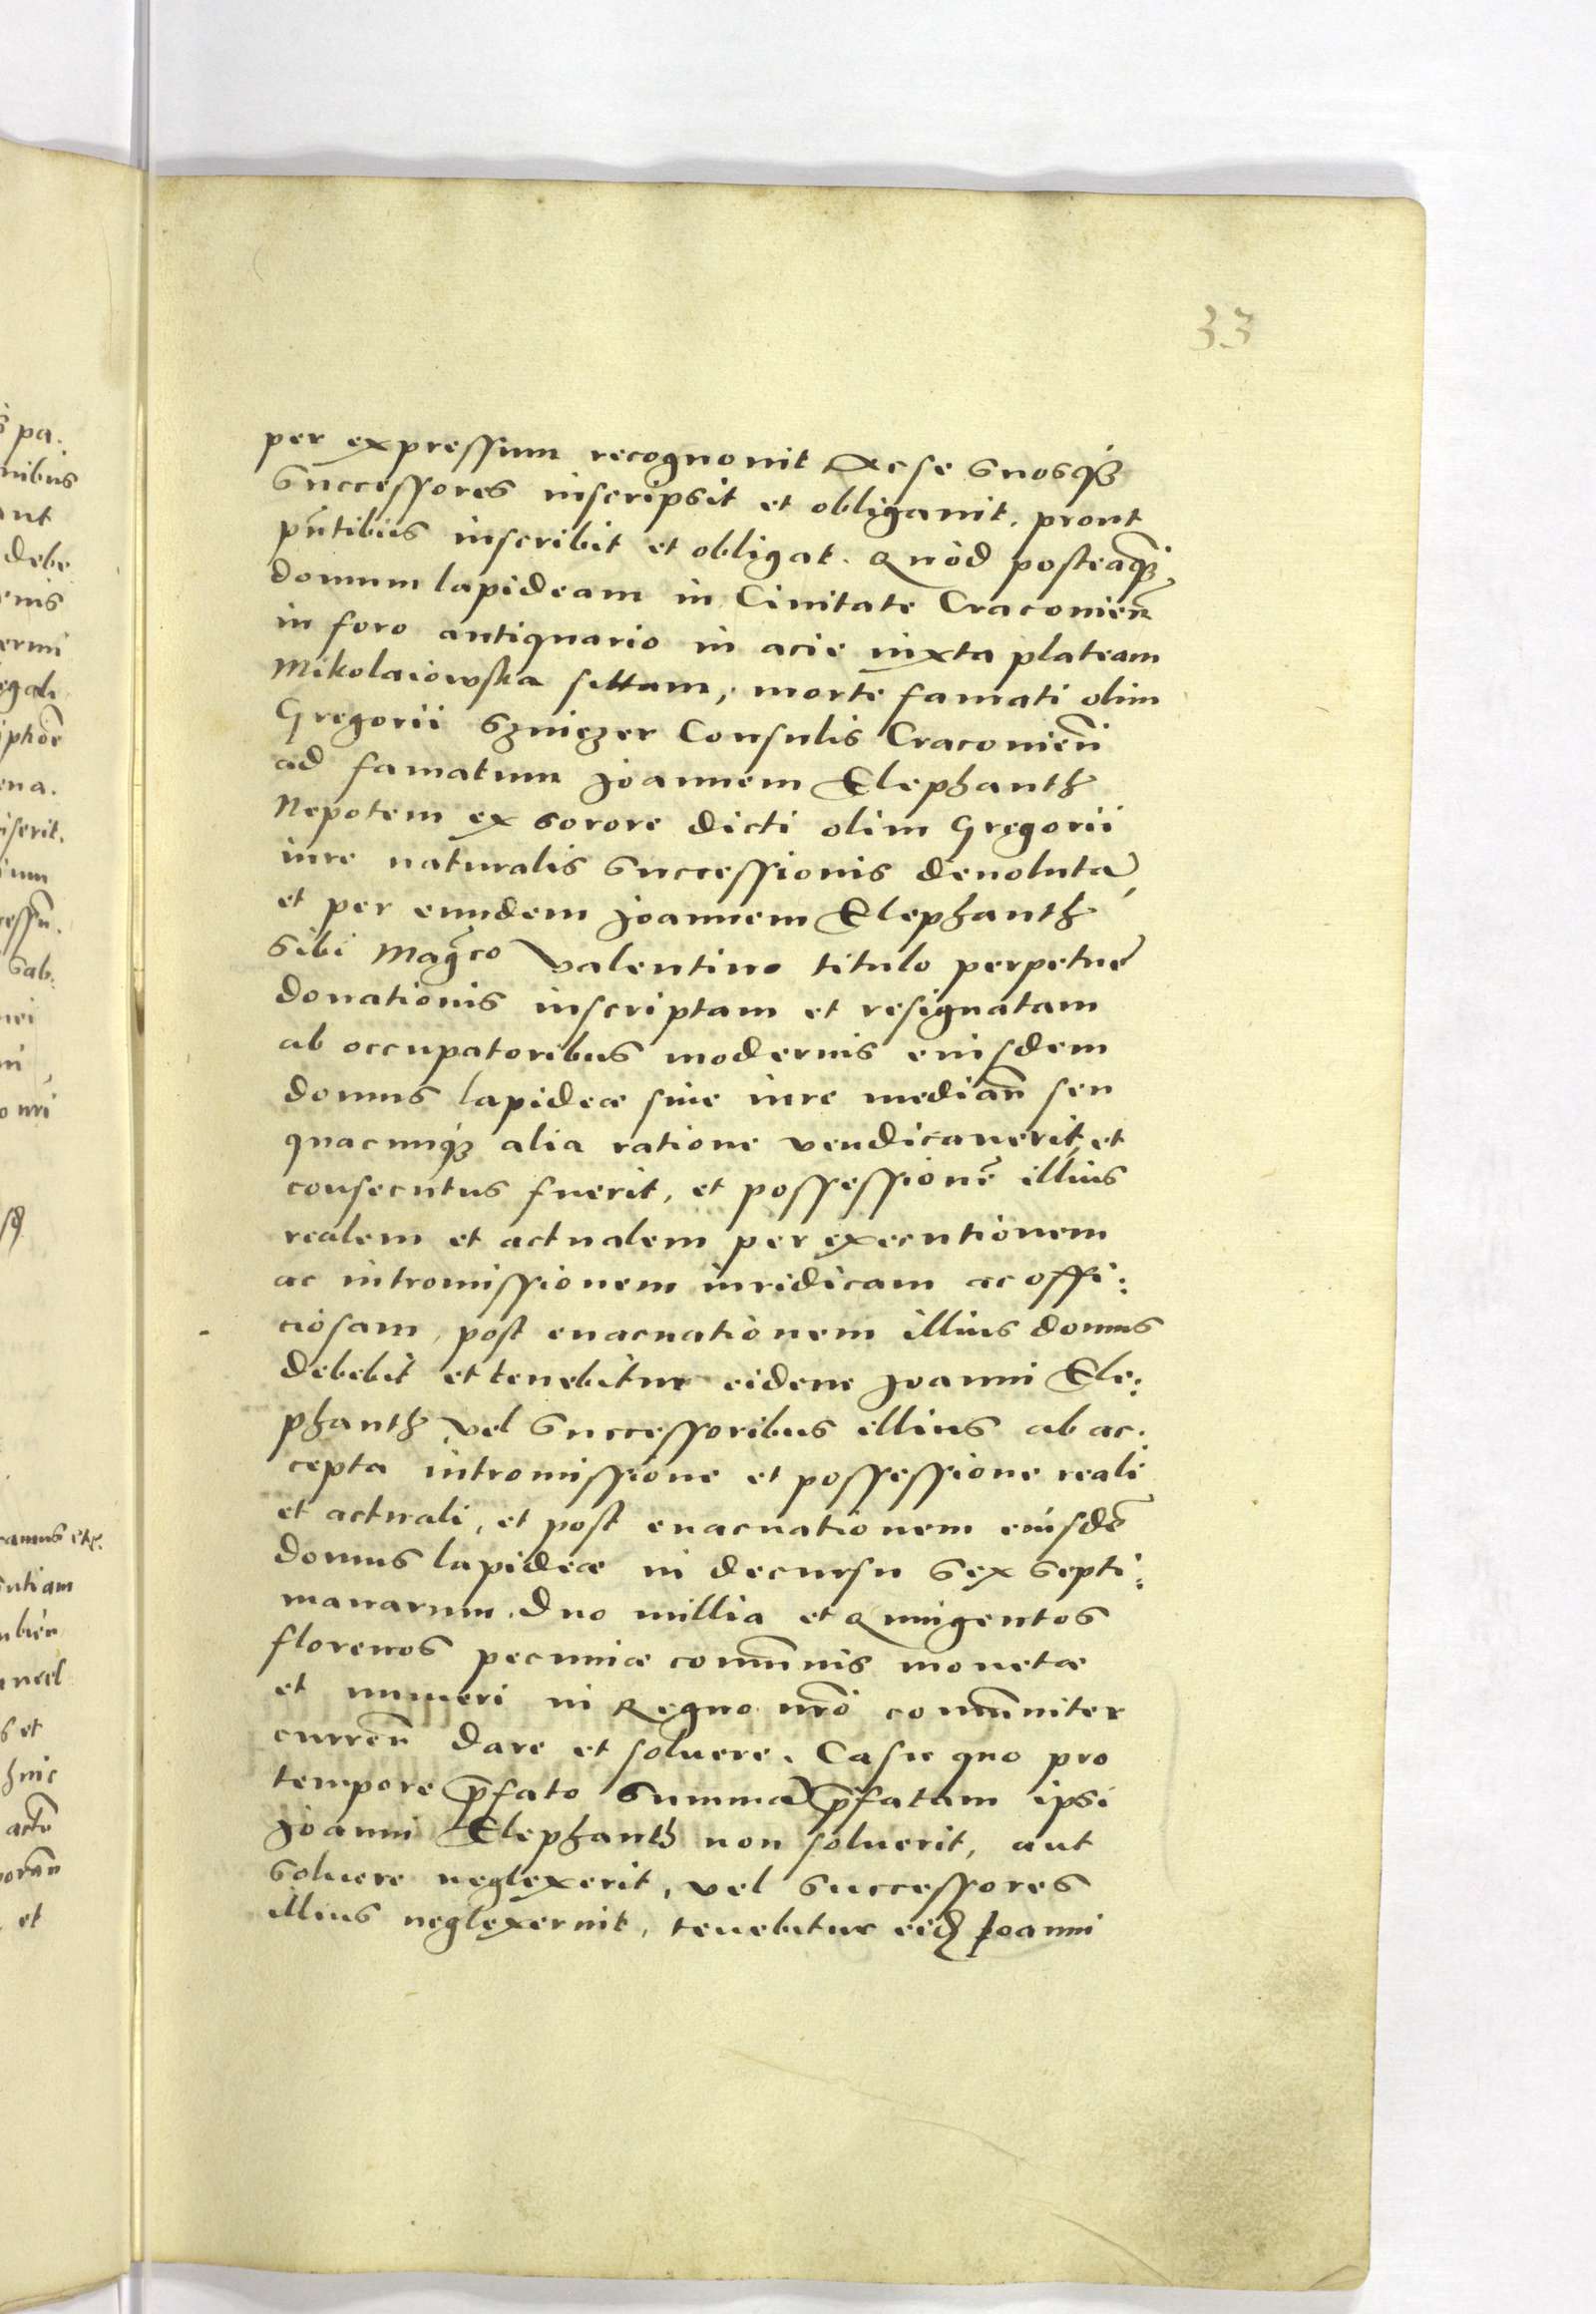 33
per expressum recognouit Ac se suosq₃
Successores inscripsit et obligauit, prout
pn̄tibus inscribit et obligat. Quòd posteaq̄₃
domum lapideam in Ciuitate Cracouien̄
in foro antiquario in acie iuxta plateam
Mikolaiowska sittam, morte famati olim
Gregorii Szniczer Consulis Cracouien̄
ad famatum Joannem Elephanth
Nepotem ex sorore dicti olim Gregorii
iure naturalis successionis deuolutā
et per eundem Joannem Elephanth
sibi Mag̃co Valentino titulo perpetuę
donationis inscriptam et resignatam
ab occupatoribus modernis eiusdem
domus lapideæ siue iure median̄ seu
quacunq₃ alia ratione vendicauerit, et
consecutus fuerit, et possessionē illius
realem et actualem per executionem
ac intromissionem iuridicam ac offi:
ciosam, post euacuationem illius domus
debebit et tenebitur eidem Joanni Ele:
phanth vel Successoribus illius ab ac:
cepta intromissione et possessione reali
et actuali, et post euacuationem eiusdē
domus lapideæ in decursu sex septi:
manarum. Duo millia et Quingentos
florenos pecuniæ com̄unis monetæ
et numeri in Regno nr̄o com̄uniter
curren̄ dare et soluere. Casu quo pro
tempore p̄fato summā p̄fatam ipsi
Joanni Elephanth non soluerit, aut
soluere neglexerit, vel successores
illius neglexerint, tenebitur eid̄ Joanni